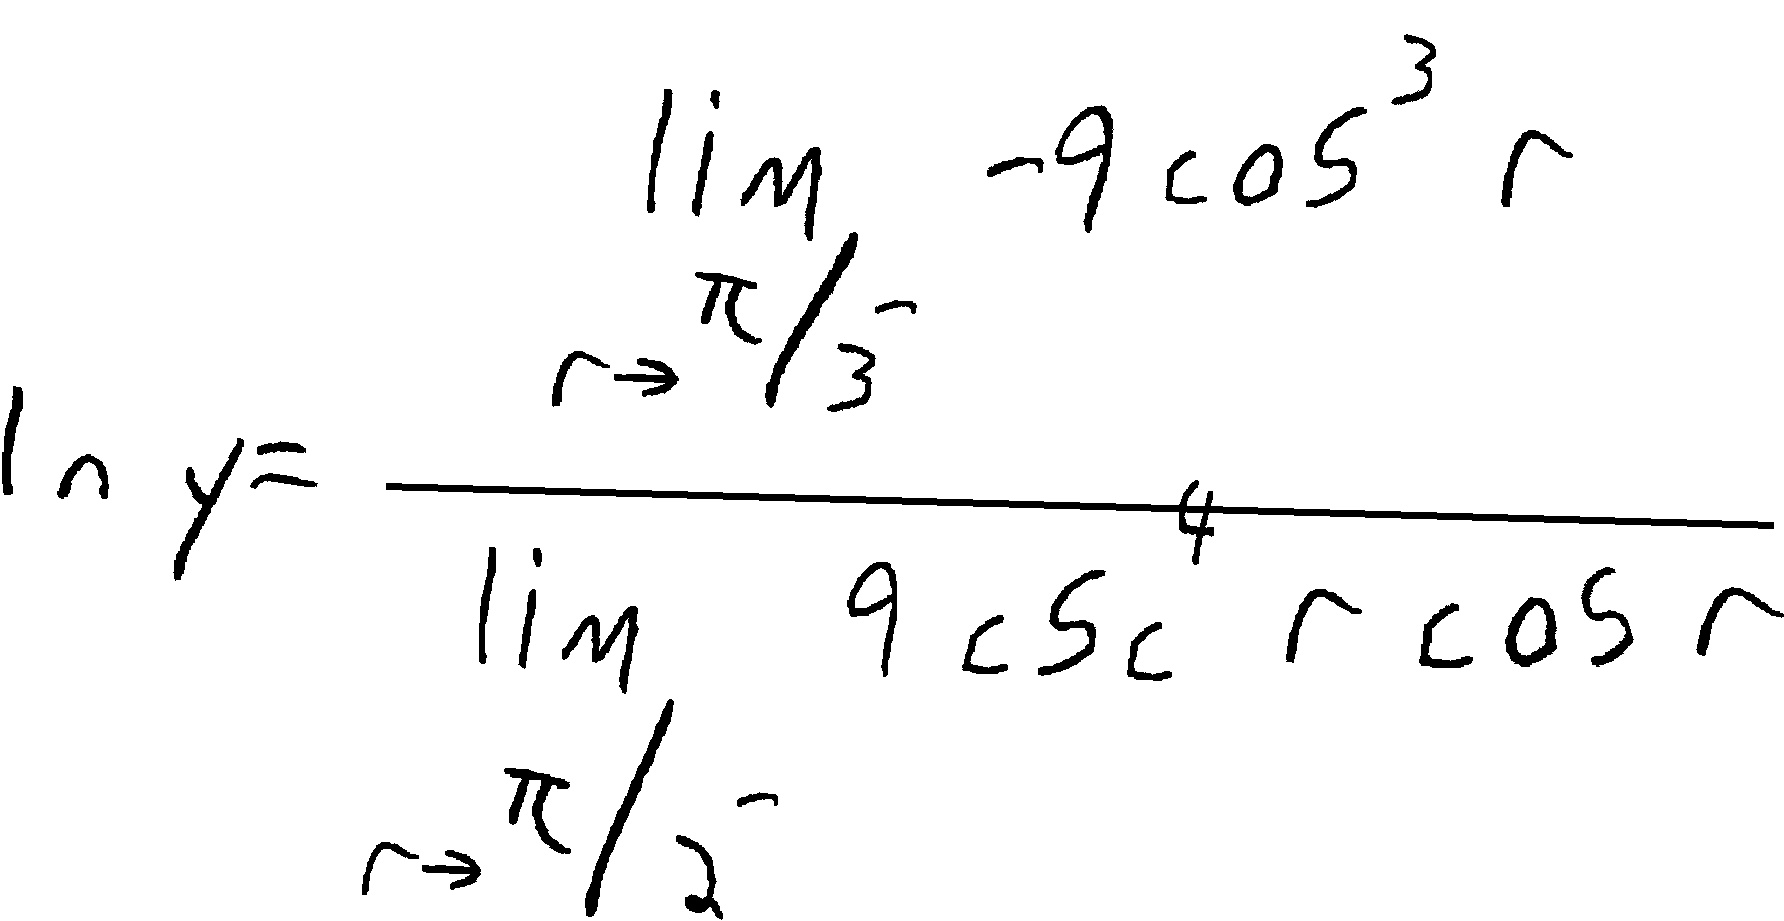 ln y = \frac{\lim_{r \to \pi/3^-} -9 \cos^3 r}{\lim_{r \to \pi/2^-} 9 \csc^4 r \cos r}